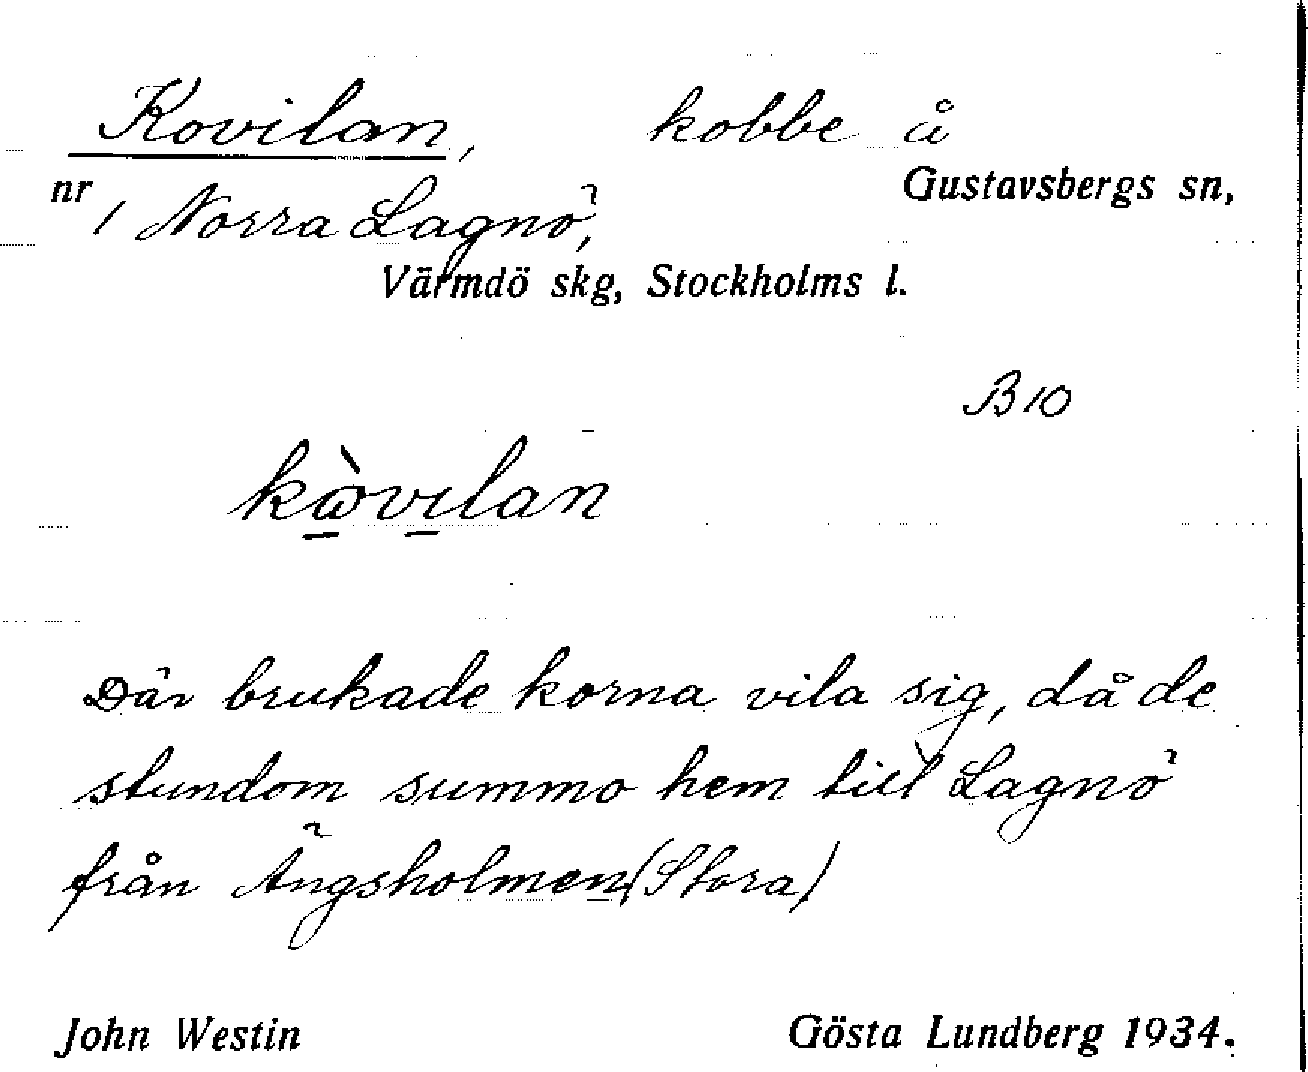 Kovilan, kobbe å
nr 1 Norra Lagnö, Gustavsbergs sn,
Värmdö skg, Stockholms l.
B 10
kɷ̀vılan
Där brukade korna vila sig, då de
stundom summo hem till Lagnö
från Ängsholmen (Stora)
John Westin Gösta Lundberg 1934.